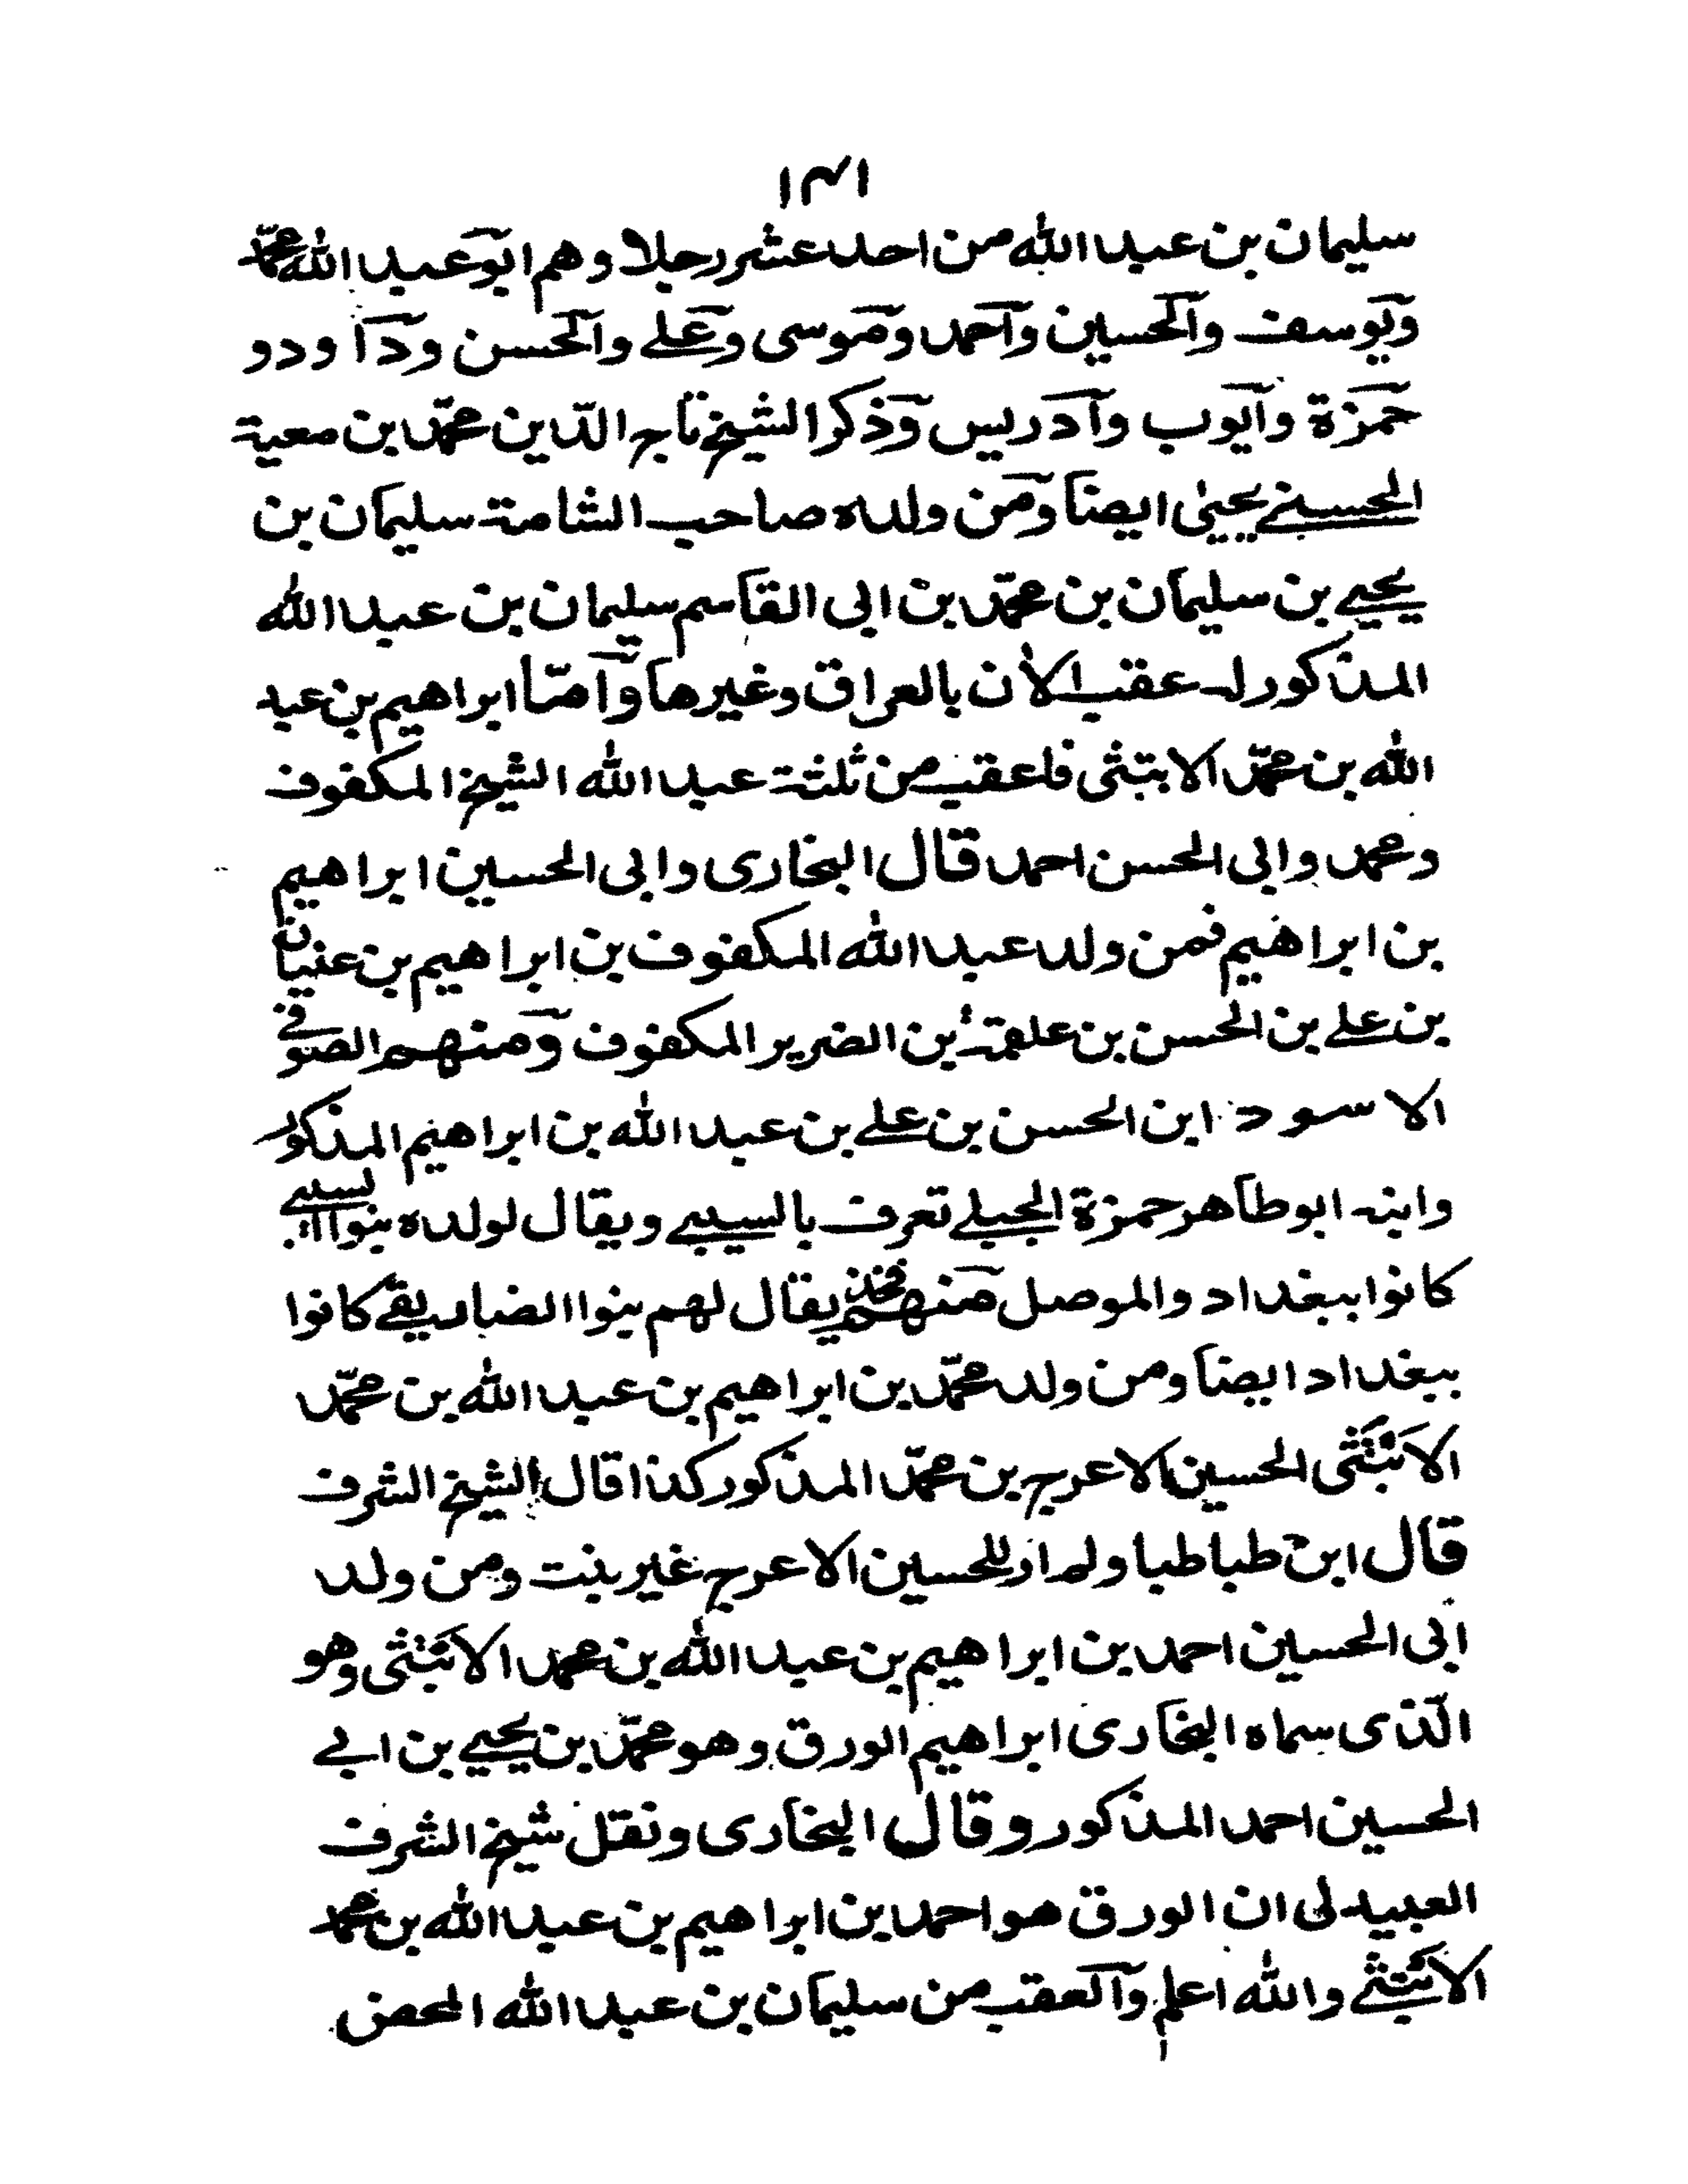 ١٣١
سليمان بن عبد الله من احد عشر رجلا وهم ابو عبد الله محمد
ويوسف والحسين واحمد وموسى وعلے والحسن ودا ودو
حمزة وايوب وادريس وذكر الشيخ تاج الدّين محمّد بن معية
الحسنے يحيٰى ايضا ومن ولده صاحب الشامة سليمان بن
يحيے بن سليمان بن محمّد بن ابى القاسم سليمان بن عبد الله
المذكور له عقب الان بالعراق وغيرها وامّا ابراهيم بن عبد
الله بن محمّد الابتثى فاعقب من ثلثة عبد الله الشيخ المكفوف
ومحمد وابى الحسن احمد قال البخارى وابى الحسين ابراهيم
بن ابراهيم فمن ولد عبد الله المكفوف بن ابراهيم بن عنيان
بن علے بن الحسن بن علقة بن الضرير المكفوف ومنهم الصوفے
الاسود ابن الحسن بن علے بن عبد الله بن ابراهيم المذكور
وابنه ابو طاهر حمزة الجبلے تعرف بالسيبے ويقال لولده بنوا السيبے
كانوا ببغداد والموصل منهم فخذ يقال لهم بنوا الضباريقے كانوا
ببغداد ايضا ومن ولد محمّد بن ابراهيم بن عبد الله بن محمّد
الابتثى الحسين الاعرج بن محمّد المذكور كذا قال الشيخ الشرف
قال ابن طباطبا ولم ار للحسين الاعرج غير بنت ومن ولد
ابى الحسين احمد بن ابراهيم بن عبد الله بن محمد الابتثى وهو
الّذى سماه البخارى ابراهيم الورق وهو محمّد بن يحيے بن ابے
الحسين احمد المذكور وقال البخارى ونقل شيخ الشرف
العبيدلى ان الورق هو احمد بن ابراهيم بن عبد الله بن محمد
الابتثے والله اعلم والعقب من سليمان بن عبد الله المحض